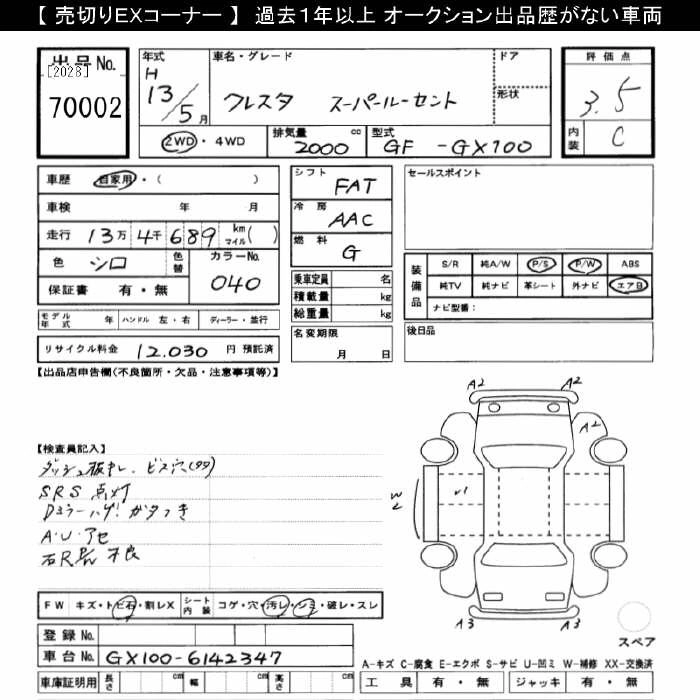 【 売切りEXコーナー 】 過去１年以上 オークション出品歴がない車両
出品No.
[2028]
70002
年式
H
13/5月
車名・グレード
クレスタ スーパールーセント
ドア
形状
評価点
3.5
内装
C
2WD・4WD
排気量
2000
cc
型式
GF -GX100
車歴
自家用・( )
車検 年 月
走行 13万4千689 km マイル( )
色 シロ
色替
カラーNo.
040
保証書 有・無
シフト
FAT
冷房
AAC
燃料
G
乗車定員 名
積載量 kg
総重量 kg
セールスポイント
装備品
S/R 純A/W P/S P/W ABS
純TV 純ナビ 革シート 外ナビ エアB
ナビ型番：
モデル年式 年 ハンドル 左・右 ディーラー・並行
名変期限
月 日
後日品
リサイクル料金 12.030 円 預託済
【出品店申告欄(不良箇所・欠品・注意事項等)】
【検査員記入】
ダッシュ板キレ．ビス穴(タタ)
SRS 点灯
Dミラーハゲ! ガタつき
A・U・アセ
不良
FW キズ・トビ石・割レX
シート内装 コゲ・穴・汚レ・シミ・破レ・スレ
登録No.
車台No. GX100-6142347
車庫証明用 長さ cm 幅 cm 高さ cm
A2
A2
A2
W2
A3
A3
スペア
A-キズ C-腐食 E-エクボ S-サビ U-凹ミ W-補修 XX-交換済
工具 有・無 ジャッキ 有・無